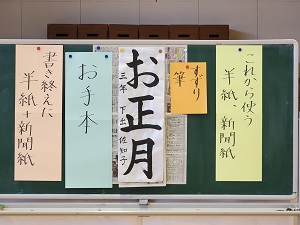 これから使う
半紙、新聞紙
すずり
筆
お正月
三年 下出佐知子
お手本
書き終えた
半紙+新聞紙